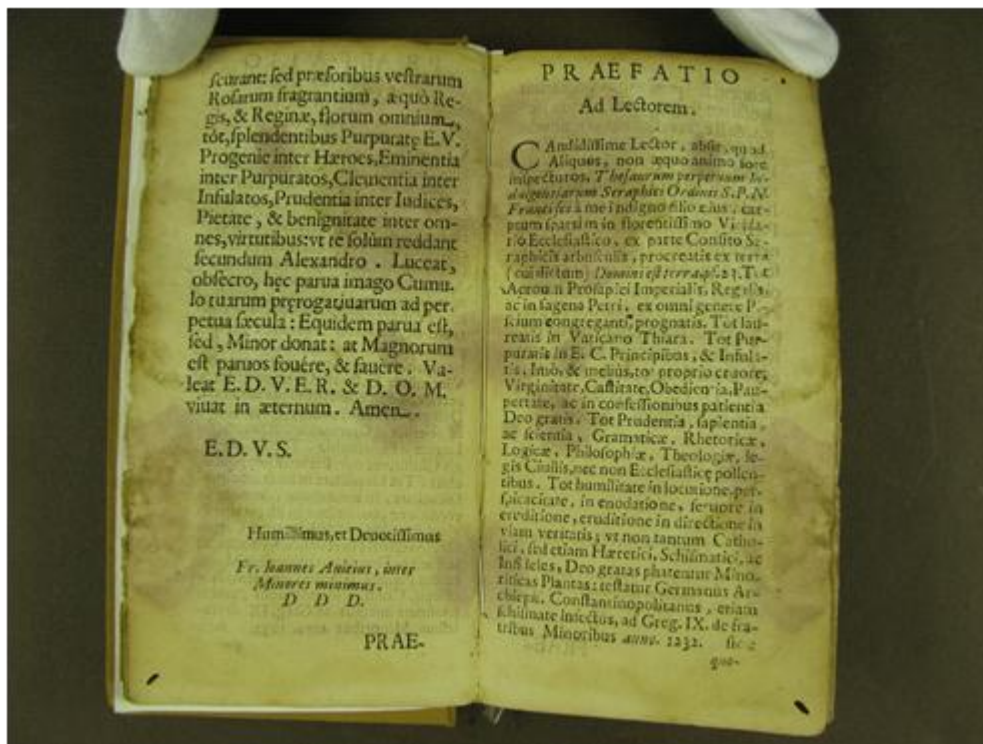 scurant: sed præforibus vestrarum
Rosarum fragrantium, æquò Re-
gis, & Reginæ, florum omnium,
tót, splendentibus Purpuratę E.V.
Progenie inter Hæroes, Eminentia
inter Purpuratos, Clementia inter
Infulatos, Prudentia inter Iudices,
Pietate, & benignitate inter om-
nes, virtutibus: vt te solùm reddant
secundum Alexandro. Luceat,
obsecro, hęc parua imago Cumu-
lo tuarum pręrogatiuarum ad per
petua sæcula: Equidem parua est,
sed, Minor donat: at Magnorum
est paruos fouére, & fauère. Va-
leat E. D. V. E. R. & D. O. M.
viuat in æternum. Amen.
E. D. V. S.
Humillimus, et Deuotissimus
Fr. Ioannes Anieius, inter
Minores minimus.
D D D.
PRAE-
PRAEFATIO
Ad Lectorem.
CAndidissime Lector, absit, quod
Aliquos, non æquo animo fore
inspecturos, Thesaurum perpetuum In-
dulgentiarum Seraphici Ordinis S. P. N.
Francisci à me indigno filio eius, car-
ptum sparsim in florentissimo Virida-
rio Ecclesiastico, ex parte Consito Se-
raphicis arbusculis, procreatis ex terra
(cui dictum) Domini est terra. ps. 23. Tot
Aeroum Prosapiei Imperialis, Regalis,
ac in sagena Petri, ex omni genere Pi-
scium congreganti, prognatis. Tot lau-
reatis in Vaticano Thiara. Tot Pur-
puratis in E. C. Principibus, & Infula-
tis. Imò, & meliùs, tot proprio cruore,
Virginitate, Castitate, Obedientia, Pau-
pertate, ac in confessionibus patientia
Deo gratis. Tot Prudentia, sapientia,
ac scientia, Gramaticæ, Rhetoricæ,
Logicæ, Philosophiæ, Theologiæ, le-
gis Ciuilis, nec non Ecclesiasticę pollen-
tibus. Tot humilitate in locutione, per-
spicacitate, in enodatione, feruore in
eruditione in directione in
viam veritatis; vt non tantum Catho-
lici, sed etiam Hæretici, Schismatici, ac
Infideles, Deo gratas phateantur Mino-
riticas Plantas: testatur Germanus Ar-
chiep. Constantinopolitanus, etiam
schismate infectus, ad Greg. IX. de fra-
tribus Minoribus anno. 1232. sic:
quo-